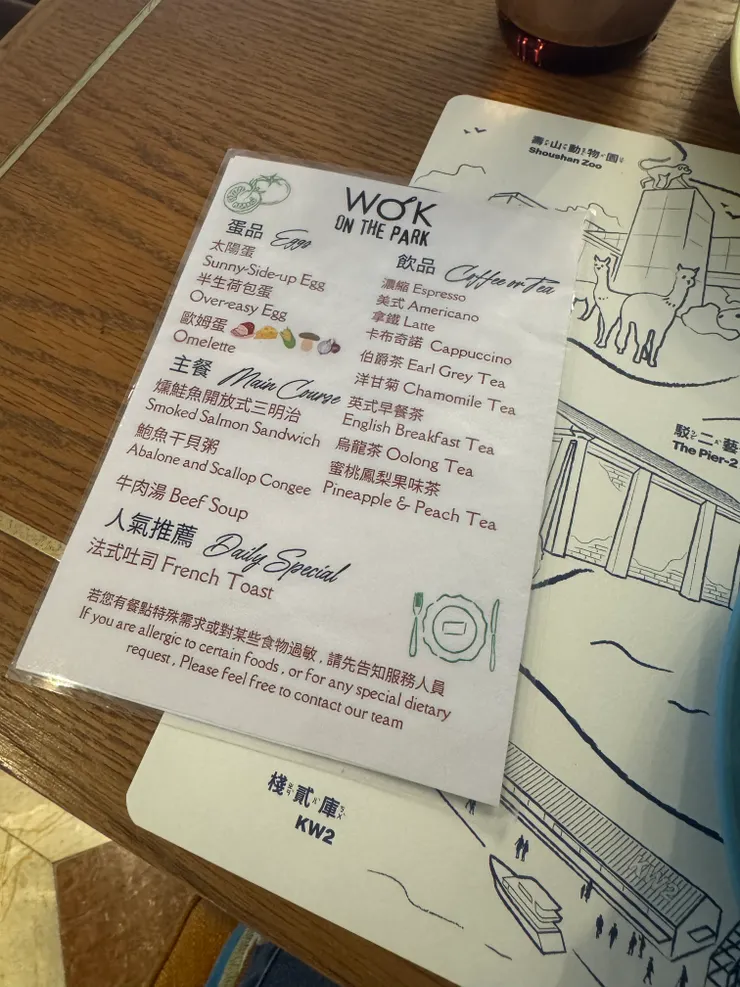 壽山動物園
Shoushan Zoo
WOK
ON THE PARK
蛋品 Eggs
太陽蛋
Sunny-Side-up Egg
半生荷包蛋
Over-easy Egg
歐姆蛋
Omelette
主餐 Main Course
燻鮭魚開放式三明治
Smoked Salmon Sandwich
鮑魚干貝粥
Abalone and Scallop Congee
牛肉湯 Beef Soup
人氣推薦 Daily Special
法式吐司 French Toast
飲品 Coffee or Tea
濃縮 Espresso
美式 Americano
拿鐵 Latte
卡布奇諾 Cappuccino
伯爵茶 Earl Grey Tea
洋甘菊 Chamomile Tea
英式早餐茶
English Breakfast Tea
烏龍茶 Oolong Tea
蜜桃鳳梨果味茶
Pineapple & Peach Tea
若您有餐點特殊需求或對某些食物過敏，請先告知服務人員
If you are allergic to certain foods , or for any special dietary
request , Please feel free to contact our team
駁二藝
The Pier-2
棧貳庫
KW2
KW2